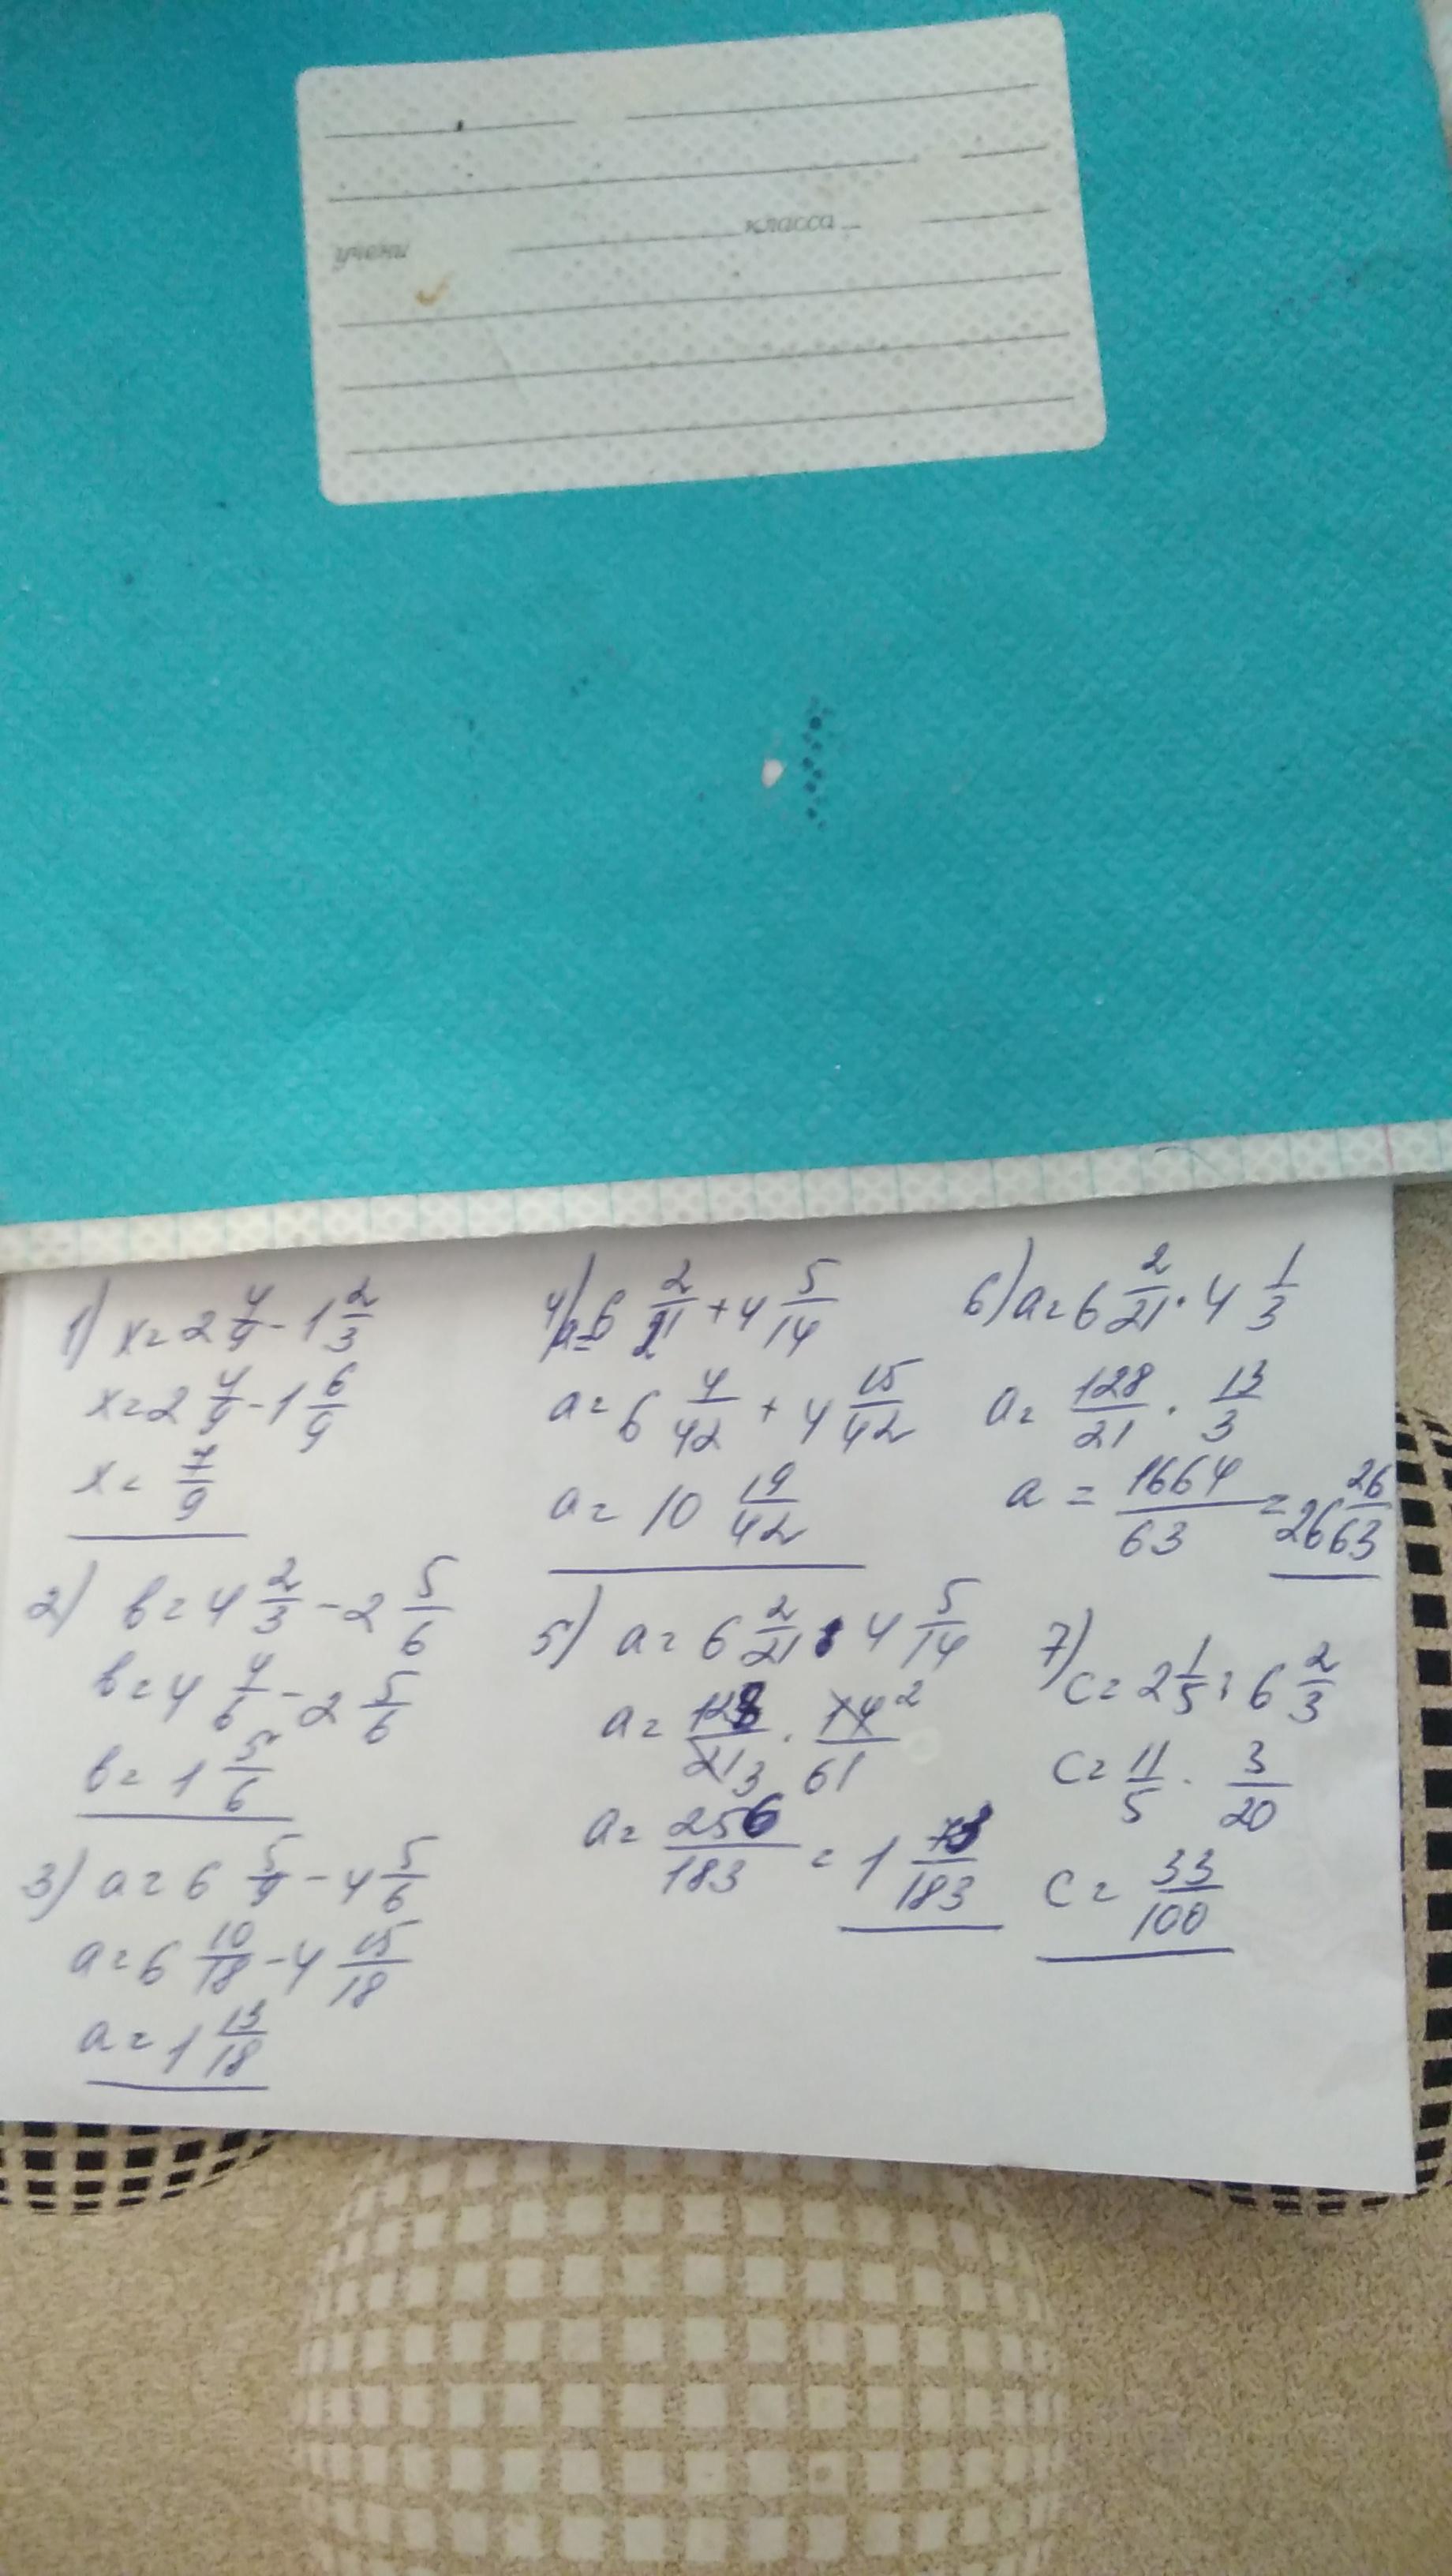 учени класса
1) x = 2 4/9 - 1 2/3
x = 2 4/9 - 1 6/9
x = 7/9
2) b = 4 2/3 - 2 5/6
b = 4 4/6 - 2 5/6
b = 1 5/6
3) a = 6 5/9 - 4 5/6
a = 6 10/18 - 4 15/18
a = 1 13/18
4) a = 6 2/21 + 4 5/14
a = 6 4/42 + 4 15/42
a = 10 19/42
5) a = 6 2/21 : 4 5/14
a = 128/21 3 · 14 2/61
a = 256/183 = 1 73/183
6) a = 6 2/21 · 4 1/3
a = 128/21 · 13/3
a = 1664/63 = 26 26/63
7) c = 2 1/5 : 6 2/3
c = 11/5 · 3/20
c = 33/100